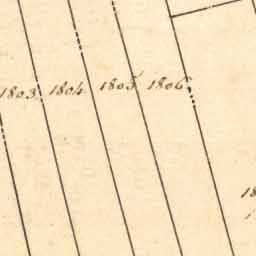 1803 1804 1805 1806
18